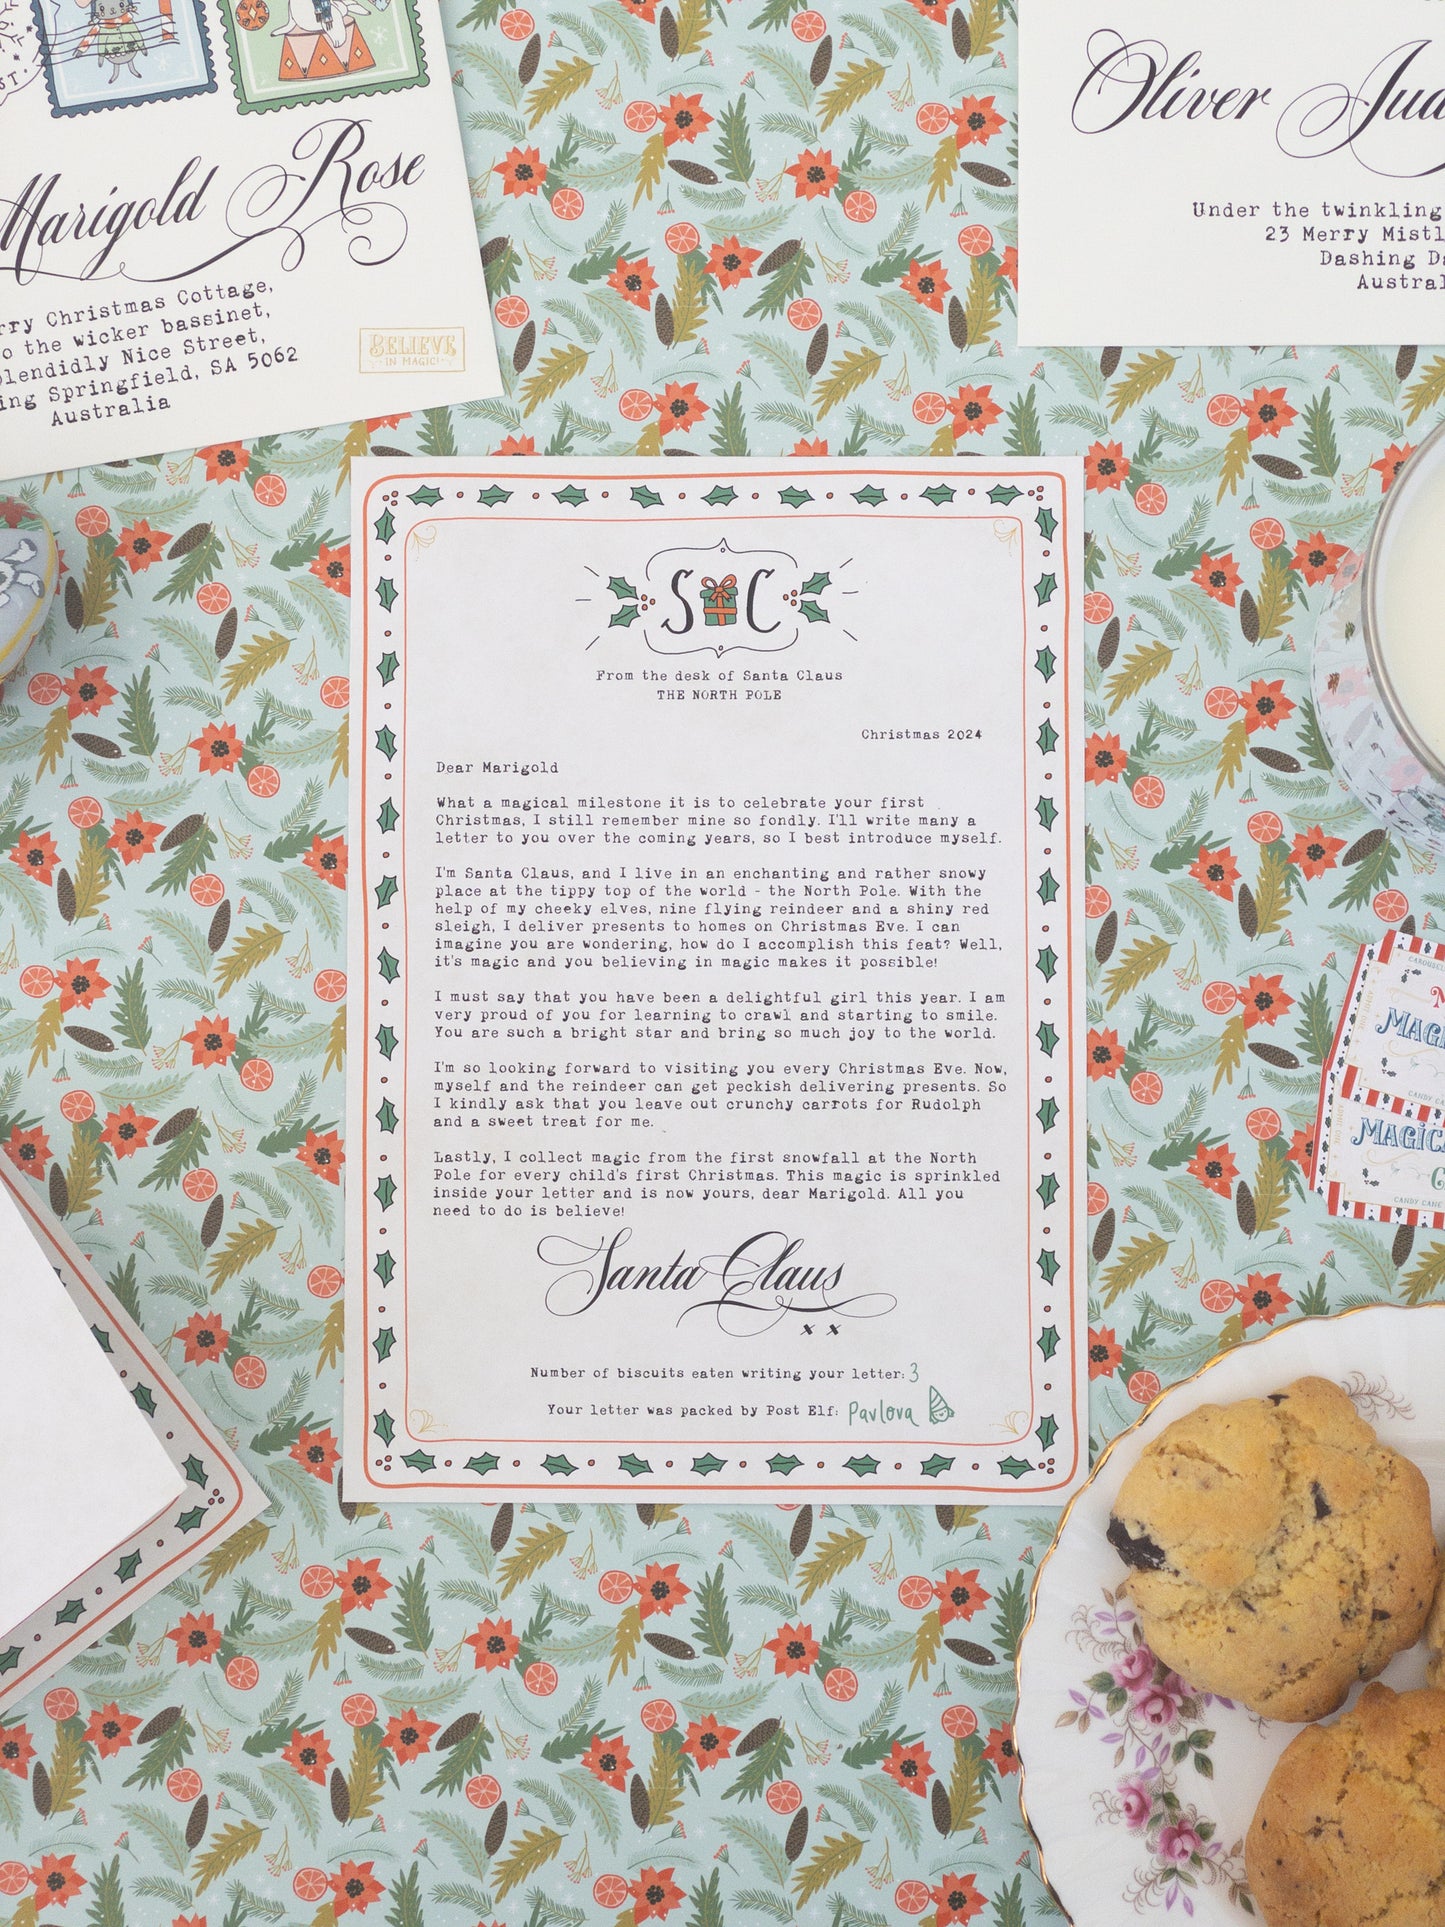 Marigold Rose
Christmas Cottage,
the wicker bassinet,
Nice Street,
Springfield, SA 5062
Australia
BELIEVE
IN MAGIC!
Oliver
Under the twinkling
23 Merry
Dashing
S C
From the desk of Santa Claus
THE NORTH POLE
Christmas 2024
Dear Marigold
What a magical milestone it is to celebrate your first
Christmas, I still remember mine so fondly. I'll write many a
letter to you over the coming years, so I best introduce myself.
I'm Santa Claus, and I live in an enchanting and rather snowy
place at the tippy top of the world - the North Pole. With the
help of my cheeky elves, nine flying reindeer and a shiny red
sleigh, I deliver presents to homes on Christmas Eve. I can
imagine you are wondering, how do I accomplish this feat? Well,
it's magic and you believing in magic makes it possible!
I must say that you have been a delightful girl this year. I am
very proud of you for learning to crawl and starting to smile.
You are such a bright star and bring so much joy to the world.
I'm so looking forward to visiting you every Christmas Eve. Now,
myself and the reindeer can get peckish delivering presents. So
I kindly ask that you leave out crunchy carrots for Rudolph
and a sweet treat for me.
Lastly, I collect magic from the first snowfall at the North
Pole for every child's first Christmas. This magic is sprinkled
inside your letter and is now yours, dear Marigold. All you
need to do is believe!
Santa Claus
x x
Number of biscuits eaten writing your letter: 3
Your letter was packed by Post Elf: Pavlova
CANDY CANE
CANDY CANE